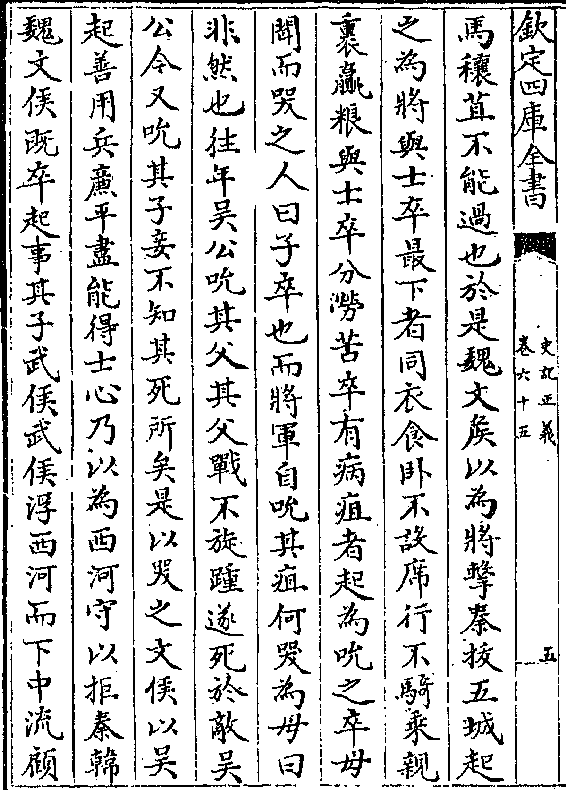 欽定四庫全書
史記正義
卷六十五
五
馬穰苴不能過也於是魏文侯以為將擊秦拔五城起
之為將與士卒最下者同衣食卧不設席行不騎乗親
裹贏粮與士卒分勞苦卒有病疽者起為吮之卒母
聞而哭之人曰子卒也而將軍自吮其疽何哭為母曰
非然也往年吳公吮其父其父戰不旋踵遂死於敵吳
公今又吮其子妾不知其死所矣是以哭之文侯以吳
起善用兵亷平盡能得士心乃以為西河守以拒秦韓
魏文侯既卒起事其子武侯武侯浮西河而下中流顧